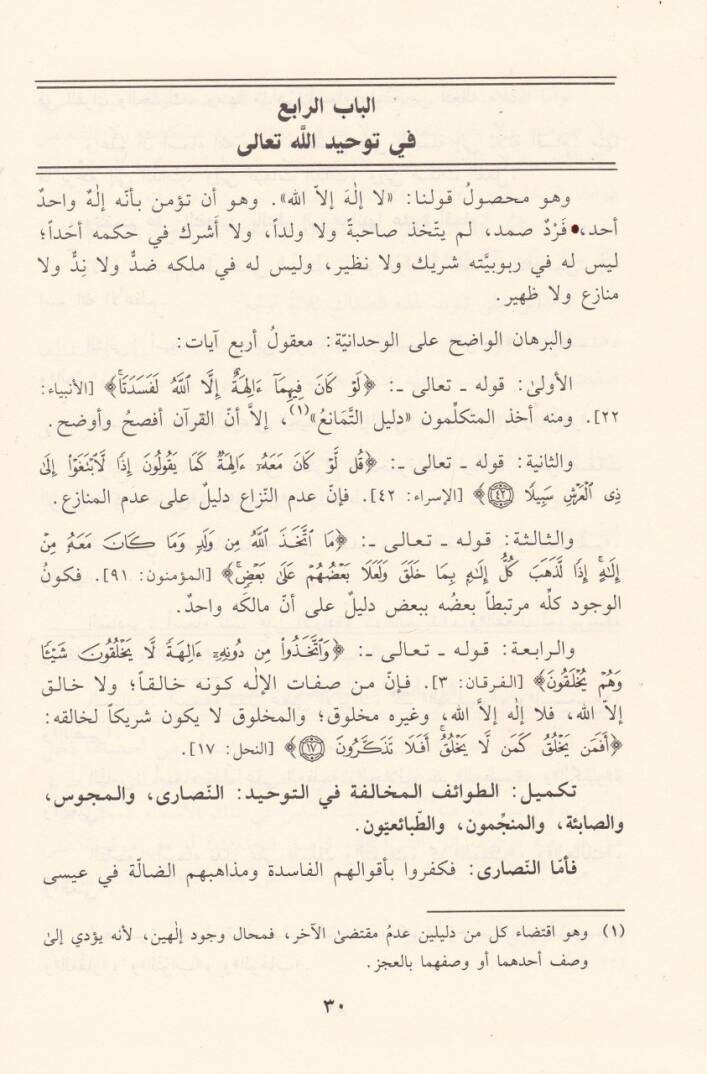 الباب الرابع
في توحيد اللَّه تعالى
وهو محصولُ قولنا: «لا إلٰهَ إلاّ الله». وهو أن تؤمن بأنّه إلٰهٌ واحدٌ
أحد، فَرْدٌ صمد، لم يتّخذ صاحبةً ولا ولداً، ولا أَشرك في حكمه أحَداً؛
ليس له في ربوبيَّته شريك ولا نظير، وليس له في ملكه ضدٌّ ولا نِدٌّ ولا
منازع ولا ظهير.
والبرهان الواضح على الوحدانيّة: معقولُ أربع آيات:
الأولىٰ: قوله ـ تعالى ـ: ﴿لَوْ كَانَ فِيهِمَآ ءَالِهَةٌ إِلَّا ٱللَّهُ لَفَسَدَتَاۚ﴾ [الأنبياء:
٢٢]. ومنه أخذ المتكلِّمون «دليل التَّمَانعُ»(١)، إلاَّ أنّ القرآن أفصحُ وأوضح.
والثانية: قوله ـ تعالى ـ: ﴿قُل لَّوْ كَانَ مَعَهُۥٓ ءَالِهَةٌ كَمَا يَقُولُونَ إِذًا لَّٱبْتَغَوْا۟ إِلَىٰ
ذِى ٱلْعَرْشِ سَبِيلًا ﴿٤٢﴾﴾ [الإسراء: ٤٢]. فإنّ عدم النّزاع دليلٌ على عدم المنازع.
والثالثة: قوله ـ تعالى ـ: ﴿مَا ٱتَّخَذَ ٱللَّهُ مِن وَلَدٍ وَمَا كَانَ مَعَهُۥ مِنْ
إِلَٰهٍۚ إِذًا لَّذَهَبَ كُلُّ إِلَٰهٍۭ بِمَا خَلَقَ وَلَعَلَا بَعْضُهُمْ عَلَىٰ بَعْضٍۚ﴾ [المؤمنون: ٩١]. فكونُ
الوجود كلِّه مرتبطاً بعضُه ببعض دليلٌ على أنّ مالكَه واحدٌ.
والرابعة: قوله ـ تعالى ـ: ﴿وَٱتَّخَذُوا۟ مِن دُونِهِۦٓ ءَالِهَةً لَّا يَخْلُقُونَ شَيْـًٔا
وَهُمْ يُخْلَقُونَ﴾ [الفرقان: ٣]. فإنّ من صفات الإلٰه كونه خالقاً؛ ولا خالق
إلاّ الله، فلا إلٰه إلاَّ الله، وغيره مخلوق؛ والمخلوق لا يكون شريكاً لخالقه:
﴿أَفَمَن يَخْلُقُ كَمَن لَّا يَخْلُقُۗ أَفَلَا تَذَكَّرُونَ ﴿١٧﴾﴾ [النحل: ١٧].
تكميل: الطوائف المخالفة في التوحيد: النّصارى، والمجوس،
والصابئة، والمنجِّمون، والطّبائعيّون.
فأمّا النّصارى: فكفروا بأقوالهم الفاسدة ومذاهبهم الضالّة في عيسى
(١) وهو اقتضاء كل من دليلين عدمُ مقتضىٰ الآخر، فمحال وجود إلٰهين، لأنه يؤدي إلىٰ
وصف أحدهما أو وصفهما بالعجز.
٣٠